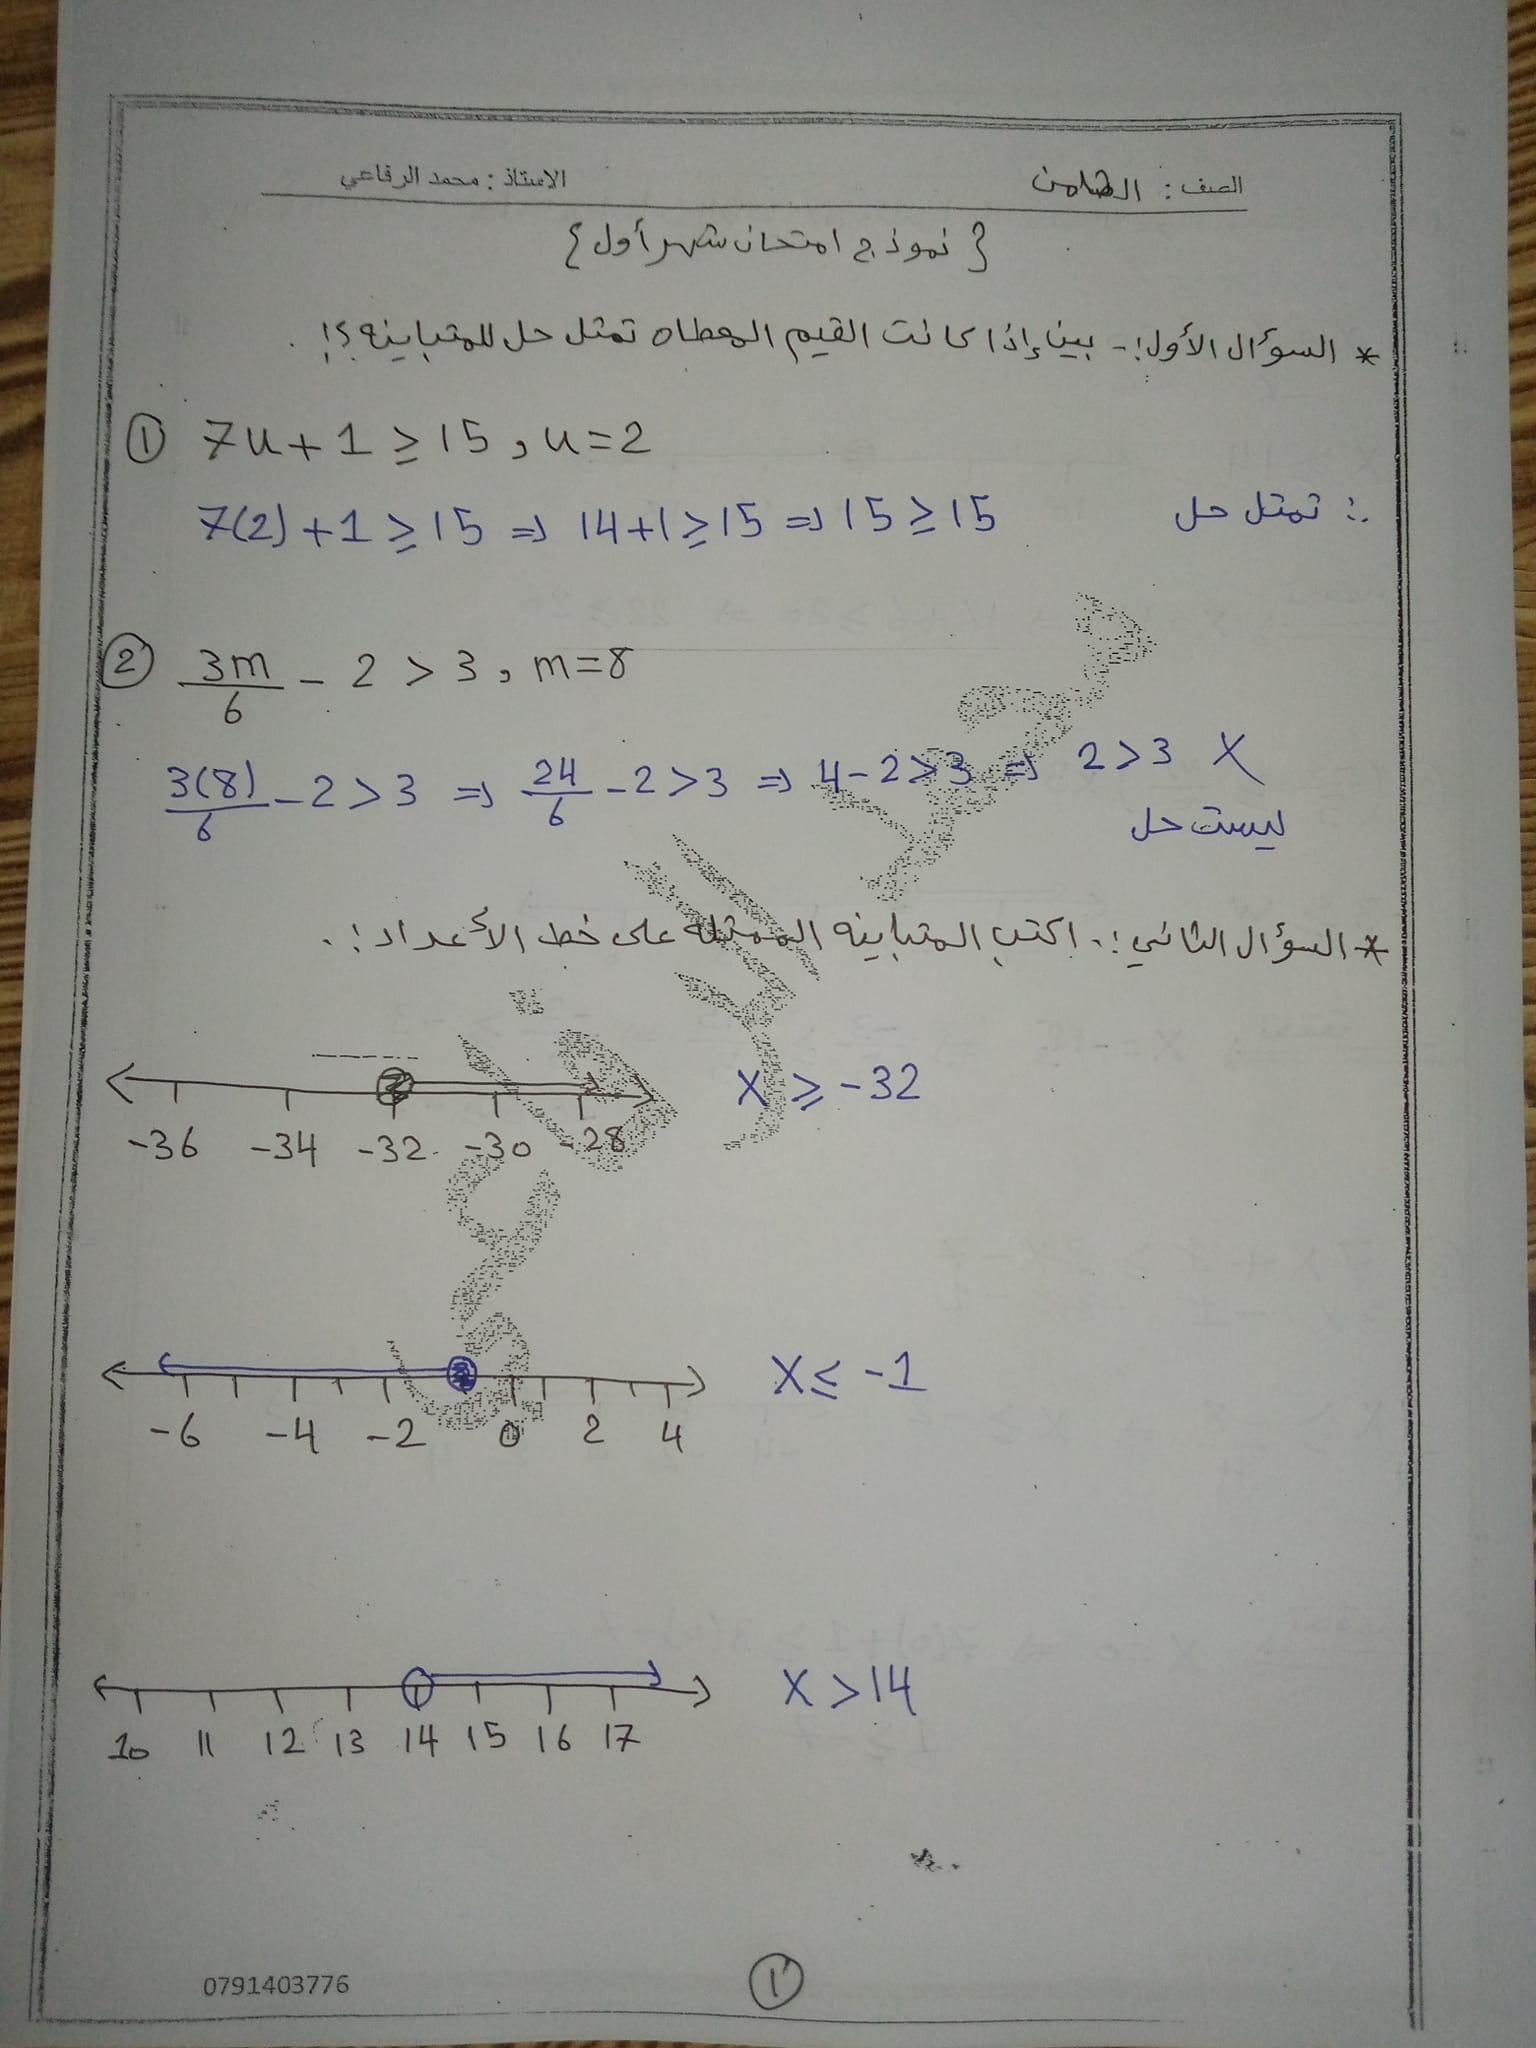 الصف : الثامن الاستاذ : محمد الرفاعي
{ نموذج امتحان شهر أول }
* السؤال الأول :- بين إذا كانت القيم المعطاه تمثل حل للمتباينه ؟!
① 7u + 1 ≥ 15 , u = 2
7(2) + 1 ≥ 15 ⇒ 14 + 1 ≥ 15 ⇒ 15 ≥ 15 ∴ تمثل حل
② 3m/6 - 2 > 3 , m = 8
3(8)/6 - 2 > 3 ⇒ 24/6 - 2 > 3 ⇒ 4 - 2 > 3 ⇒ 2 > 3 X
ليست حل
* السؤال الثاني :. اكتب المتباينه الممثله على خط الأعداد :.
x ≥ -32
-36 -34 -32 -30 -28
x ≤ -1
-6 -4 -2 0 2 4
x > 14
10 11 12 13 14 15 16 17
①
0791403776
محمد الرفاعي